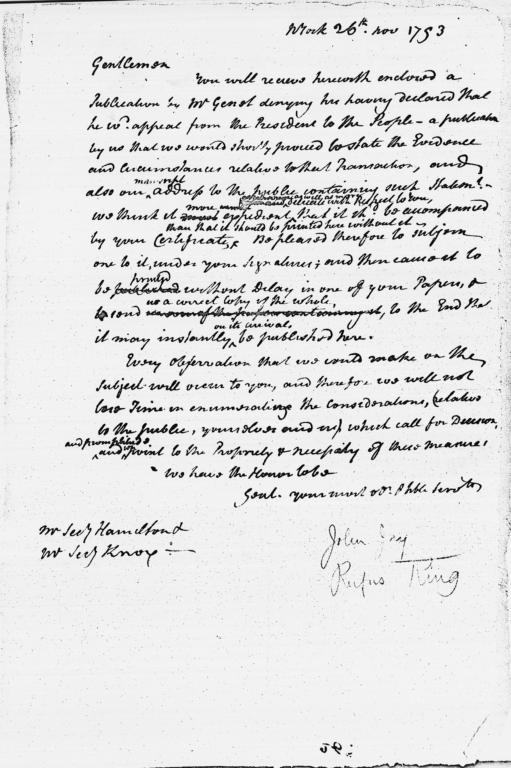 NYork 26th. nov 1793
Gentlemen
You will recieve herewith enclosed a
Publication by Mr Genet denying his having declared that
he wd. appeal from the President to the People – a publication
by us that we would shortly proceed to state the Evidence
and Circumstances relative to that Transaction, and
manuscript
also our address to the public containing such Statemt. –
as well as more delicate with Respect to you,
we think it more expedient that it shd. be accompanied
than that it should be printed here without it –
by your Certificate, Be pleased therefore to subjoin
one to it, under your Signatures; and then cause it to
printed
be published without Delay in one of your Papers, &
us a correct copy of the whole,
to send to the End that
on its arrival,
it may instantly be published here.
Every observation that we could make on the
Subject will occur to you, and therefore we will not
lose Time in enumerating the Considerations, (relative
to the public, yourselves and us) which call for Decision,
and promptitude
and point to the Propriety & necessity of these measures.
we have the Honor to be
Gent. your most obt. & hble servts
Mr Secy Hamilton &
Mr Secy Knox
John Jay
Rufus King